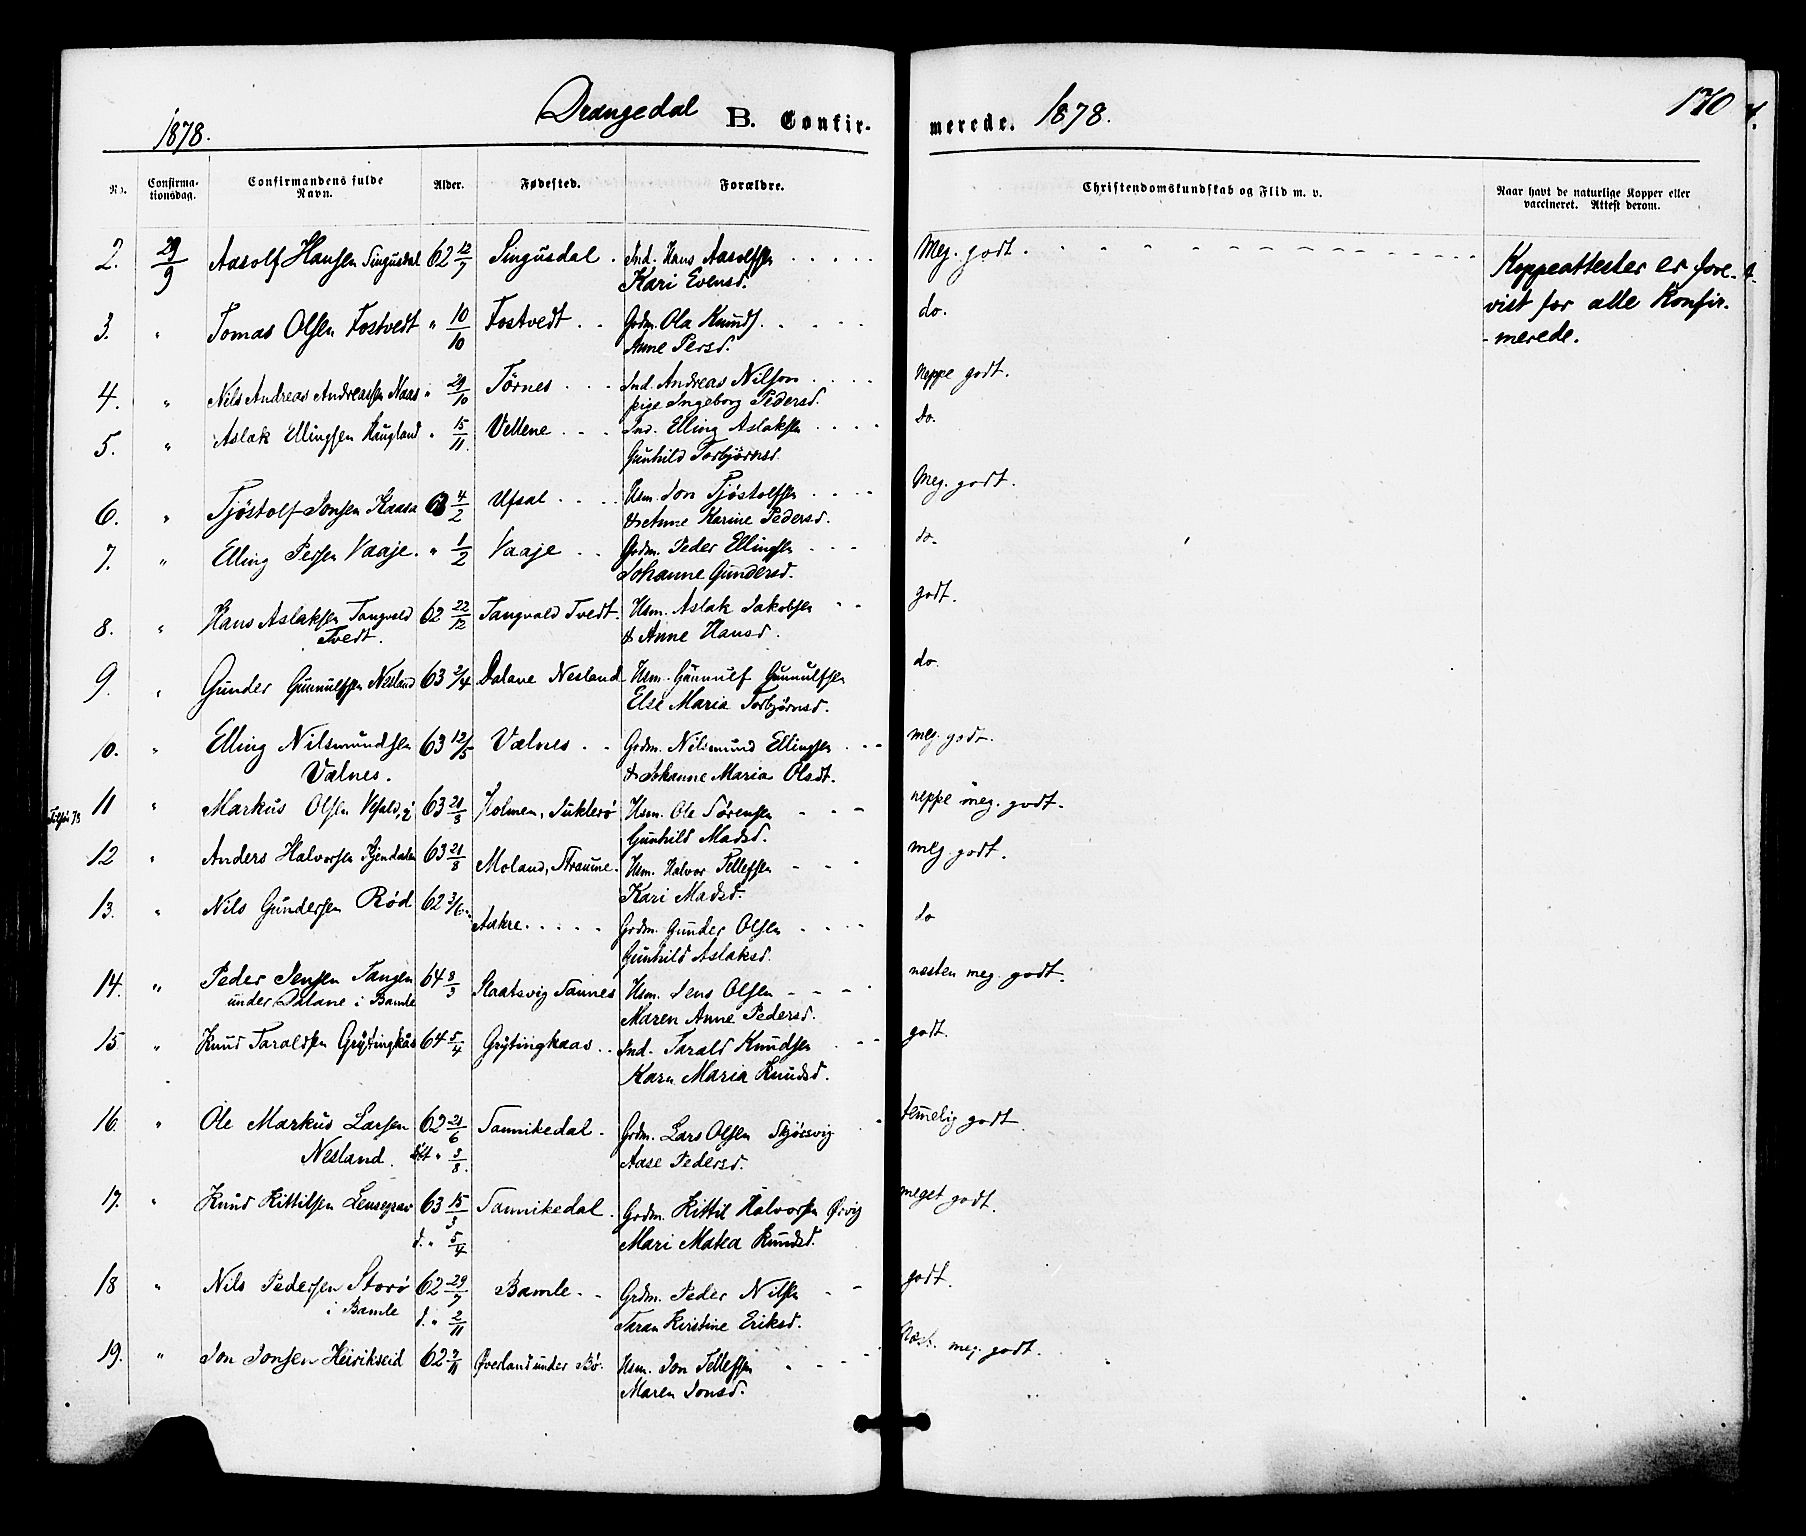 1878. Drangedal B. Confirmerede. 1878. 170
No. Confirmationsdag. Confirmandens fulde Navn. Alder. Fødested. Forældre. Christendomskundskab og Flid m. v. Naar havt de naturlige Kopper eller vaccineret. Attest derom.
2. 29/9 Aasolf Hansen Singusdal 62 12/7 Singusdal. Ind. Hans Aasolfsen Meg. godt. Koppeattester er fore-
Kari Evensd. vist for alle Konfir-
3. " Tomas Olsen Fostvedt " 10/10 Fostvedt . . Grdm. Ola Knuds. do. -merede.
Anne Persd.
4. " Nils Andreas Andreassen Naas " 29/10 Törnes . . . Ind. Andreas Nilson neppe godt.
pige Ingeborg Pedersd.
5. " Aslak Ellingsen Haugland " 15/11. Vellene . . . Ind. Elling Aslaksen do.
Gunhild Torbjörnsd.
6. " Tjöstolf Jonsen Kaasa 63 4/2 Ufsal . . . Hsm. Jon Tjöstolfsen Meg. godt.
& Anne Karine Pedersd.
7. " Elling Persen Vaaje. " 1/2 Vaaje . . Grdm. Peder Ellingsen do.
Johanne Gundersd.
8. " Hans Aslaksen Tangvald 62 22/12 Tangvald Tvedt. Hsm. Aslak Jakobsen godt.
Tvedt. & Anne Hansd.
9. " Gunder Gunnulfsen Nesland 63 2/4 Dalane Nesland Hsm. Gunnulf Gunnulfsen do.
Else Maria Torbjørnsd.
10. " Elling Nilsmundsen 63 12/5 Valnes . . Grdm. Nilsmund Ellingsen meg. godt.
Valnes. & Johanne Maria Olsdt.
11 " Markus Olsen 63 21/3 Holmen, Sukterö Hsm. Ole Sörensen neppe meg. godt.
Gunhild Madsd.
12 " Anders Halvorsen 63 21/8 Moland, Straume. Hsm. Halvor Tellefsen meg. godt.
Kari Madsd.
13. " Nils Gundersen Rød 62 3/6 Aakre . . . . . Grdm. Gunder Olsen do
Gunhild Aslaksd.
14. " Peder Jensen Tangen 64 8/3 Slaatsvig Sannes Hsm. Jens Olsen næsten meg. godt.
under Dalane i Bamle Maren Anne Pedersd.
15 " Knud Taraldsen Grÿtingkås 64 5/4 Grÿtingkaas . . Ind. Tarald Knudsen godt.
Karn Maria Knudsd.
16. " Ole Markus Larsen 62 21/6 Sannikedal . Grdm. Lars Olsen temelig godt.
Nesland. " 3/8. Aase Pedersd.
17. " Knud Kittilsen Lensegrav 63 15/3 Sannikedal. Grdm. Kittil Halvorsen Ørvig meget godt.
d. " 5/4 Mari Matea Knudsd.
18 " Nils Pedersen Storö 62 29/7 Bamle . . Grdm. Peder Nilsen godt.
i Bamle d. " 2/11 Taran Kirstine Eriksd.
19. " Jon Jonsen Heirikseid 62 2/11 Øverland under Bö. Hsm. Jon Tellefsen Næst. meg. godt.
Maren Jonsd.